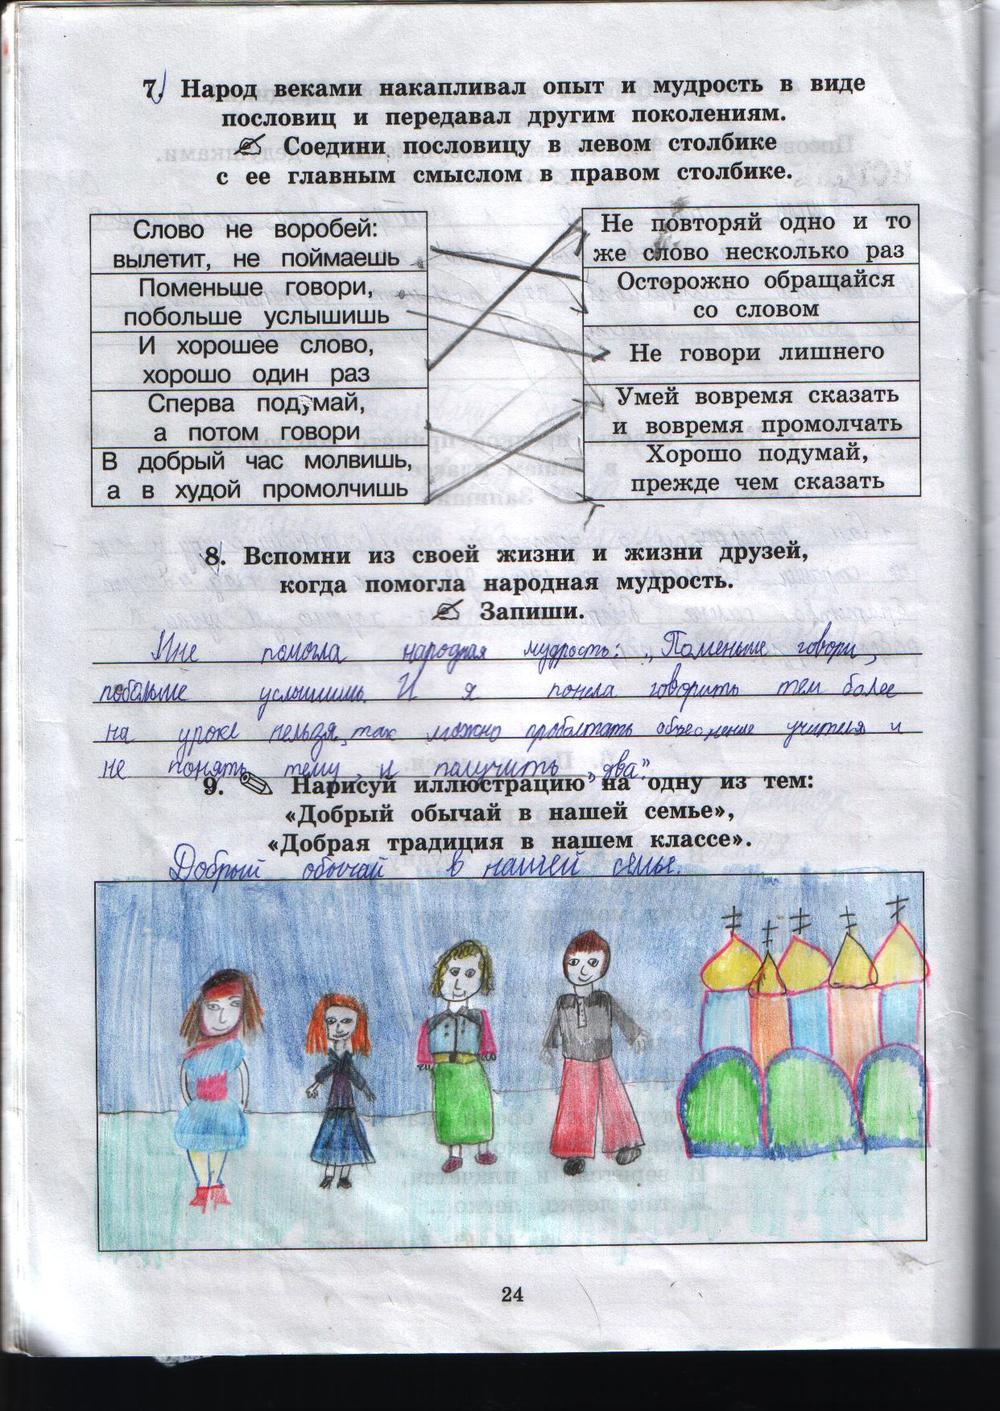 7. Народ веками накапливал опыт и мудрость в виде
пословиц и передавал другим поколениям.
Соедини пословицу в левом столбике
с ее главным смыслом в правом столбике.
Слово не воробей:
вылетит, не поймаешь
Поменьше говори,
побольше услышишь
И хорошее слово,
хорошо один раз
Сперва подумай,
а потом говори
В добрый час молвишь,
а в худой промолчишь
Не повторяй одно и то
же слово несколько раз
Осторожно обращайся
со словом
Не говори лишнего
Умей вовремя сказать
и вовремя промолчать
Хорошо подумай,
прежде чем сказать
8. Вспомни из своей жизни и жизни друзей,
когда помогла народная мудрость.
Запиши.
Мне помогла народная мудрость: „Поменьше говори,
побольше услышишь. И я поняла говорить тем более
на уроке нельзя, так можно проболтать объеснение учителя и
не понять тему, и получить „два".
9. Нарисуй иллюстрацию на одну из тем:
«Добрый обычай в нашей семье»,
«Добрая традиция в нашем классе».
Добрый обычай в нашей семье.
24